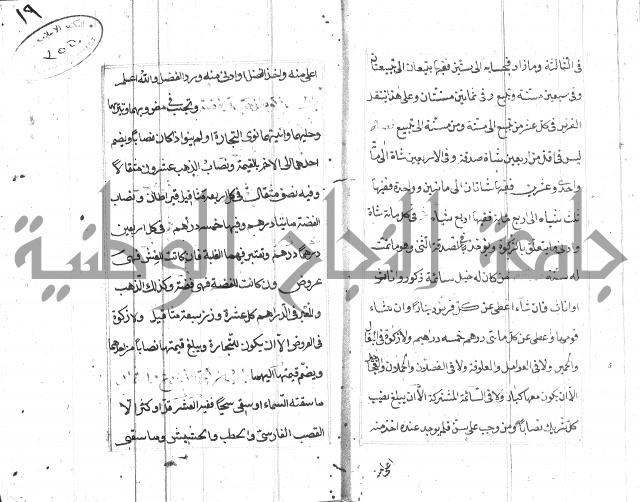 في الثالثة وما زاد فبحسابه الى ستين ففيها تبيعان الى سبعين
وفي سبعين مسنة وتبيع وفي ثمانين مسنتان وعلى هذا ينتقل
الفرض في كل عشر من تبيع الى مسنة ومن مسنة الى تبيع
ليس في اقل من اربعين شاة صدقة وفي الاربعين شاة الى مائة
واحدى وعشرين ففيها شاتان الى مائتين وواحدة ففيها
ثلث شياه الى اربع مائة ففيها اربع شياه في كل مائة شاة
وادنى ما تتعلق به الزكوة ويؤخذ في الصدقة الثنى وهو ما تمت
له سنة من كان له خيل سائمة ذكور واناث
او اناث فان شاء اعطى عن كل فرس دينارا وان شاء
قومها واعطى عن كل مائتى درهم خمسة دراهم ولا زكوة في البغال
والحمير ولا في العوامل والعلوفة ولا في الفصلان والحملان والعجاجيل
الا ان يكون معها كبار ولا في السائمة المشتركة الا ان يبلغ نصيب
كل شريك نصابا ومن وجب عليه سن فلم يوجد عنده اخذ منه
١٩
اعلى منه ورد الفضل او ادنى منه ورد الفضل والله اعلم
وتجب في مضروبهما وتبرهما
وحليهما وانيتهما نوى التجارة او لم ينو اذا كان نصابا ويضم
احدهما الى الاخر بالقيمة ونصاب الذهب عشرون مثقالا
وفيه نصف مثقال في كل اربعة مثاقيل قيراطان ونصاب
الفضة مائتا درهم وفيها خمسة دراهم في كل اربعين
درهما درهم وتعتبر فيهما الغلبة فان كانت للغش فهى
عروض وان كانت للفضة فهى فضة وكذلك الذهب
والمعتبر في الدراهم كل عشرة وزن سبعة مثاقيل ولا زكوة
في العروض الا ان يكون للتجارة ويبلغ قيمتها نصابا من احدهما
ويضم قيمتها اليهما
ما سقته السماء او سقى سيحا ففيه العشر قل او كثر الا
القصب الفارسى والحطب والحشيش وما سقى
جامعة النجاح الوطنية